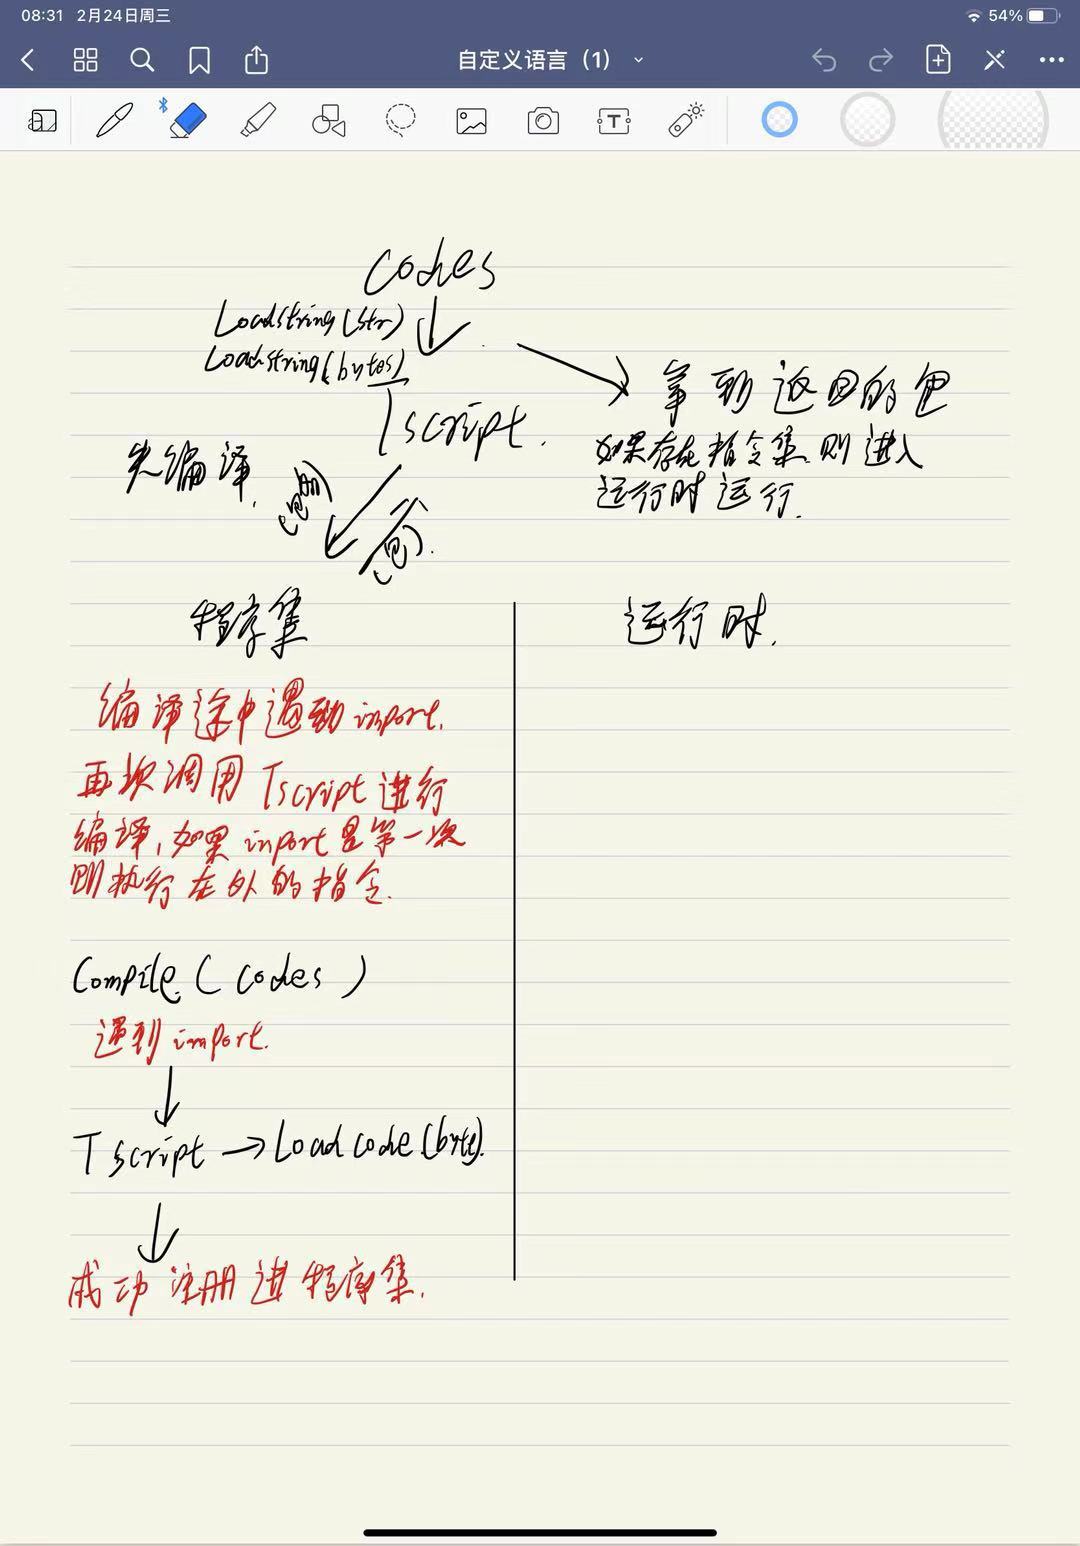 08:31 2月24日周三
54%
自定义语言（1）
T
Codes
Loadstring(str)
Loadstring(bytes)
Tscript.
拿到返回的包
如果存在指令集则进入
运行时运行.
先编译.
(包)
程序集
运行时.
编译途中遇到import.
再次调用Tscript进行
编译,如果inport是第一次
则执行在外的指令.
Compile(codes)
遇到import.
Tscript→Loadcode(byte).
成功注册进程序集.